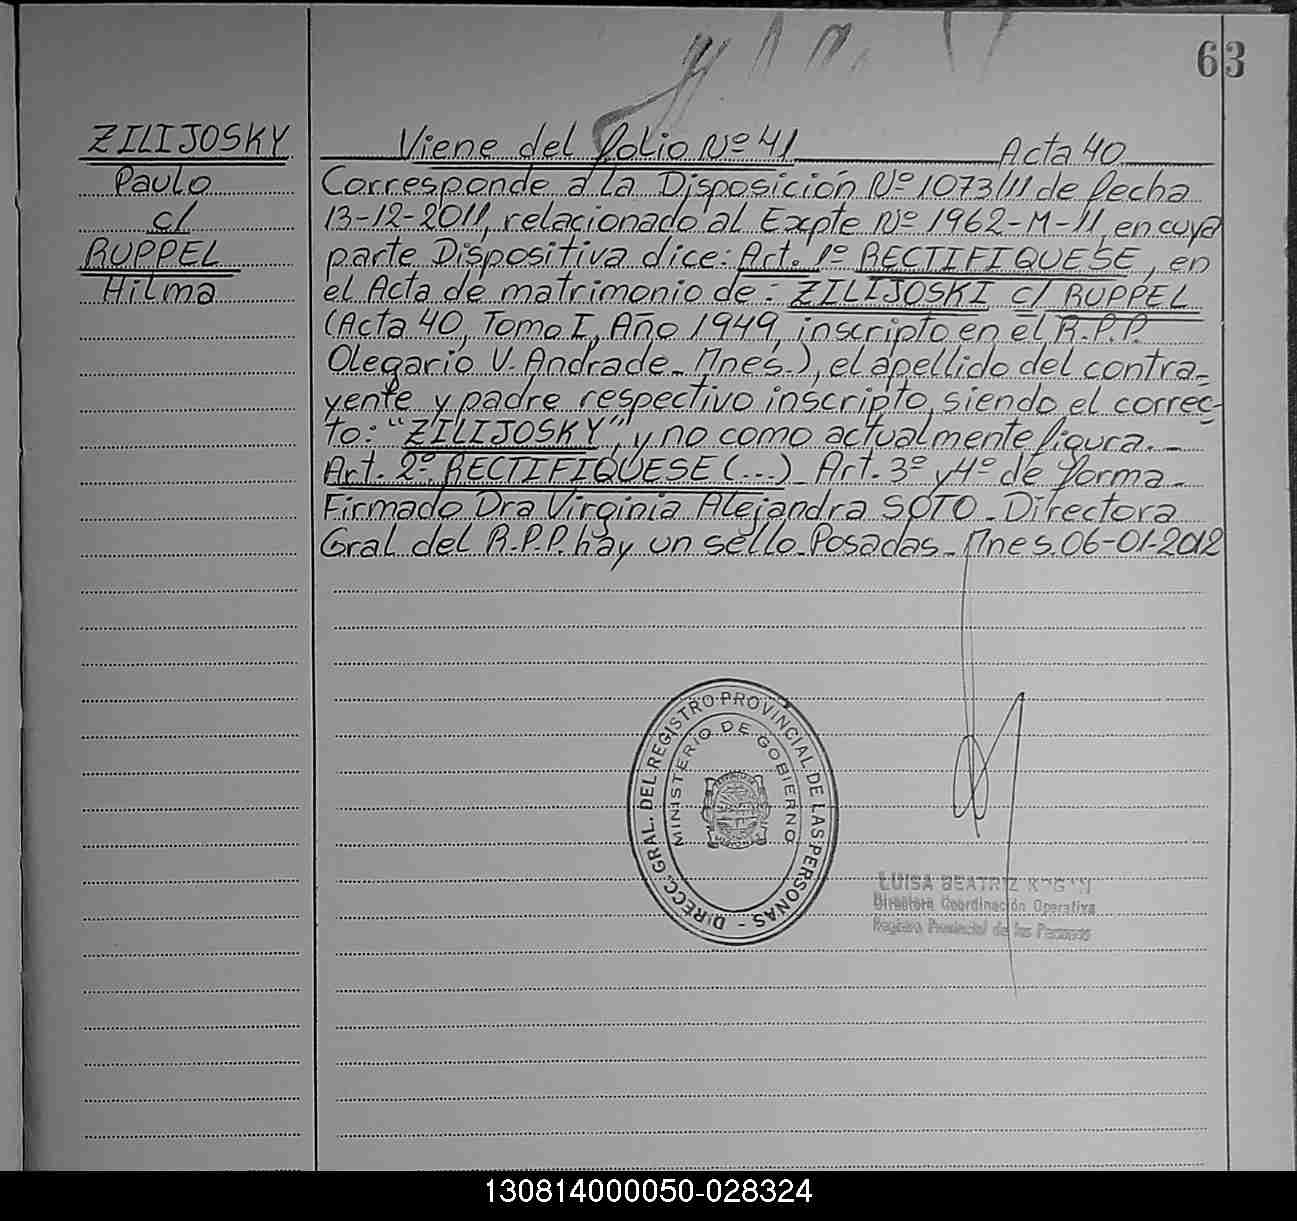 63
ZILIJOSKY
Paulo
c/
RUPPEL
Hilma
Viene del folio Nº 41 Acta 40
Corresponde a la Disposición Nº 1073/11 de fecha
13-12-2011, relacionado al Expte Nº 1962-M-11, en cuya
parte Dispositiva dice: Art. 1º RECTIFIQUESE, en
el Acta de matrimonio de: ZILIJOSKI c/ RUPPEL
(Acta 40, Tomo I, Año 1949, inscripto en el R.P.P.
Olegario V. Andrade - Mnes.), el apellido del contra-
yente y padre respectivo inscripto, siendo el correc-
to: "ZILIJOSKY", y no como actualmente figura. -
Art. 2º. RECTIFIQUESE (...) Art. 3º y 4º de forma -
Firmado Dra Virginia Alejandra SOTO - Directora
Gral del R.P.P. hay un sello - Posadas - Mnes. 06-01-2012
DIRECC. GRAL. DEL REGISTRO PROVINCIAL DE LAS PERSONAS -
MINISTERIO DE GOBIERNO
LUISA BEATRIZ
Directora Coordinación Operativa
Registro Provincial de las Personas
130814000050-028324